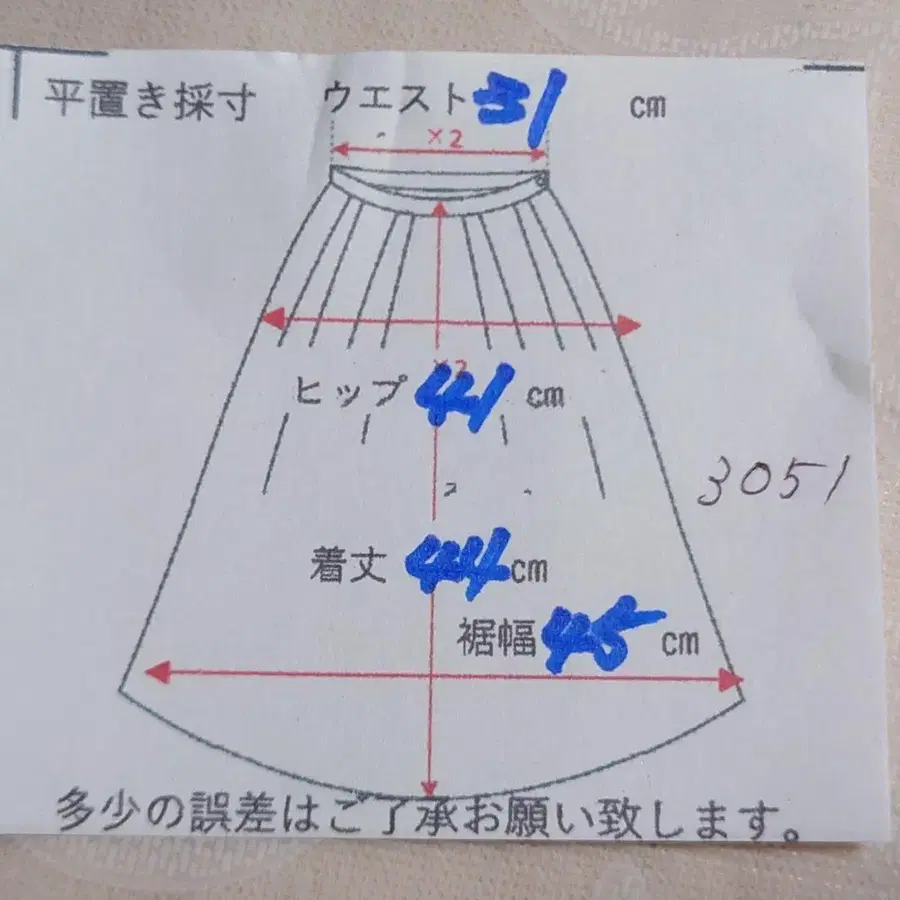 平置き採寸 ウエスト 31 cm
×2
×2
ヒップ 41 cm
3051
着丈 44 cm
裾幅 45 cm
多少の誤差はご了承お願い致します。